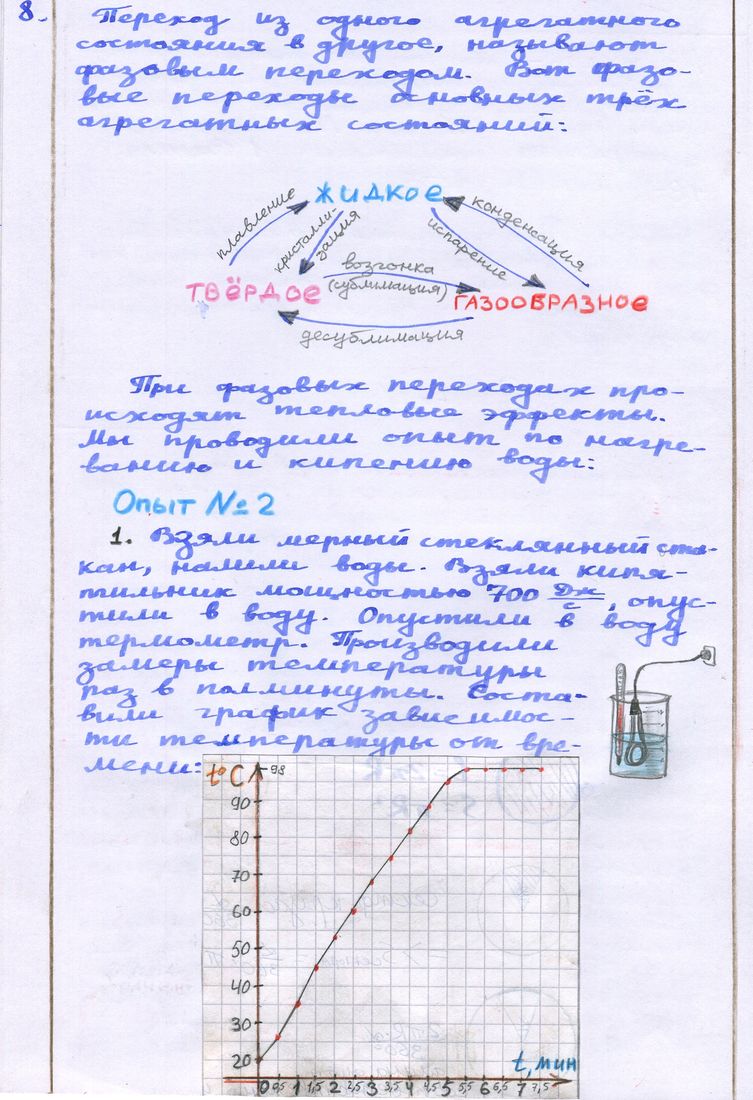 8.
Переход из одного агрегатного
состояния в другое, называют
фазовым переходом. Вот фазо-
вые переходы основных трёх
агрегатных состояний:
ЖИДКОЕ
плавление
кристалли-
зация
испарение
конденсация
возгонка
(сублимация)
ТВЁРДОЕ
ГАЗООБРАЗНОЕ
десублимация
При фазовых переходах про-
исходят тепловые эффекты.
Мы проводили опыт по нагре-
ванию и кипению воды:
Опыт №2
1. Взяли мерный стеклянный ста-
кан, налили воды. Взяли кипя-
тильник мощностью 700 Дж/с, опус-
тили в воду. Опустили в воду
термометр. Производили
замеры температуры
раз в полминуты. Соста-
вили график зависимос-
ти температуры от вре-
мени:
t°C
98
90
80
70
60
50
40
30
20
t, мин
0 0,5 1 1,5 2 2,5 3 3,5 4 4,5 5 5,5 6 6,5 7 7,5